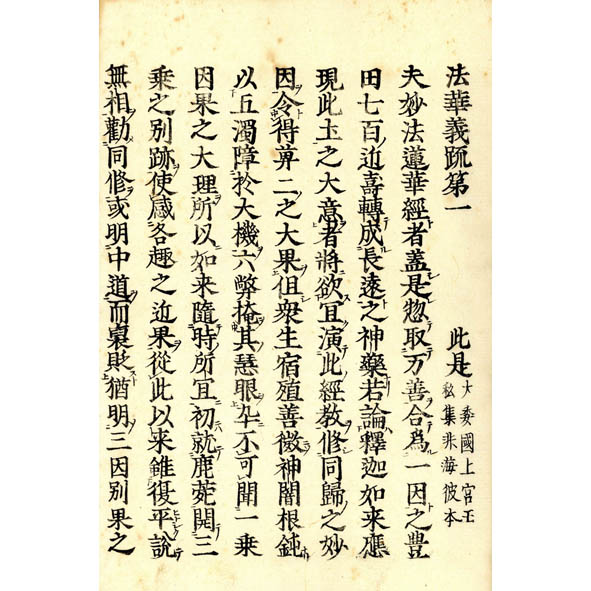 法華義疏第一　此是
大委國上宮王
私集非海彼本
夫妙法蓮華經者盖是惣取万善合為一因之豊
田七百近壽轉成長遠之神藥若論釋迦如来應
現此土之大意者將欲冝演此經教修同歸之妙
因令得莫二之大果但衆生宿殖善微神闇根鈍
以五濁障於大機六弊掩其慧眼卒不可聞一乗
因果之大理所以如来隨時所冝初就鹿菀開三
乗之別跡使感各趣之近果從此以来雖復平說
無相勸同修或明中道而襃貶猶明三因別果之